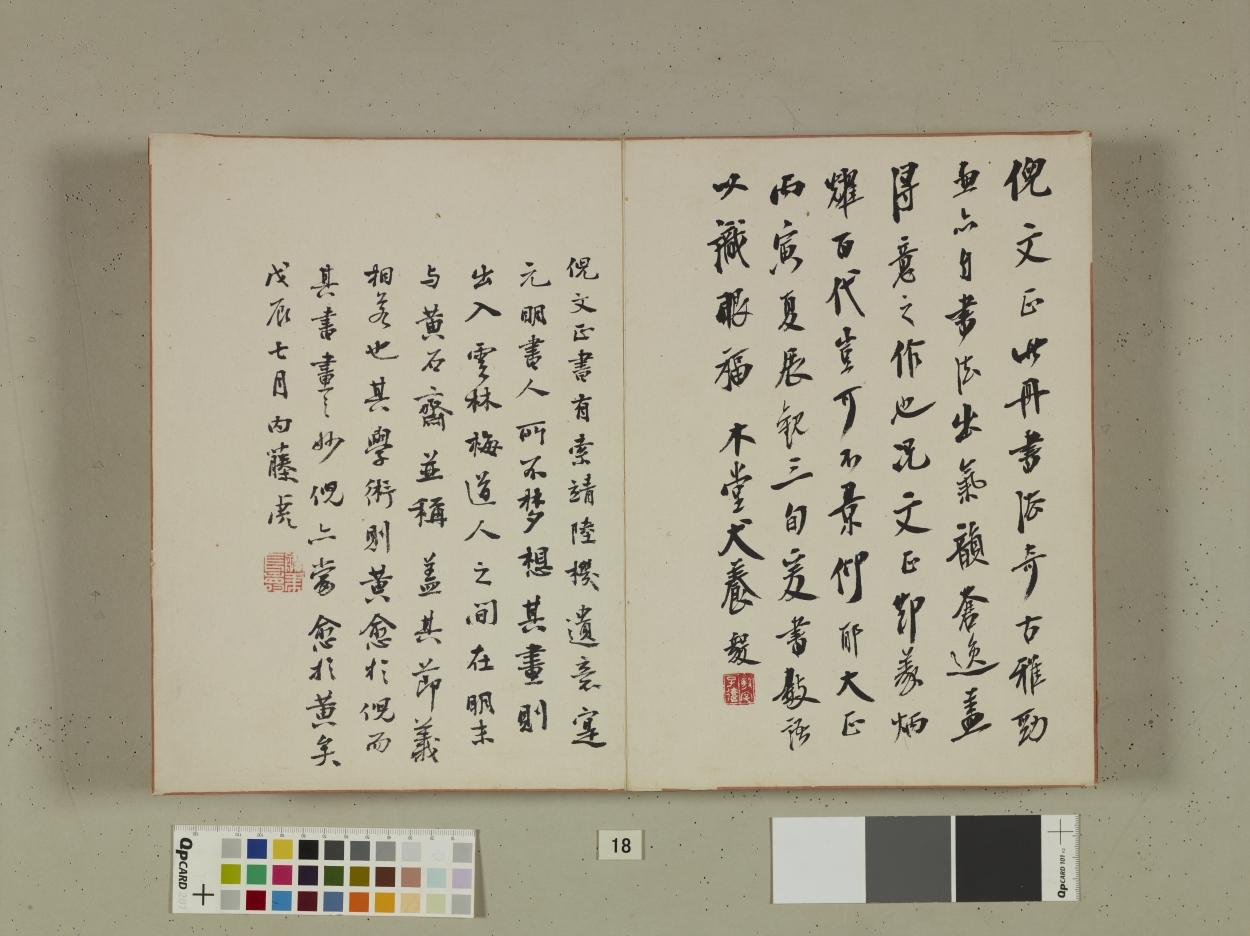 倪文正此册書法奇古雅勁
画亦自書法出氣韻蒼逸盖
得意之作也况文正節義炳
燿百代豈可不景仰耶大正
丙寅夏展観三旬爰書数語
以識眼福 木堂犬養毅
倪文正書有索靖陸機遺意寔
元明書人所不夢想其畫則
出入雲林梅道人之间在明末
与黄石齋並稱盖其節義
相若也其學術則黄愈於倪而
其書畫之妙倪亦當愈於黄矣
戊辰七月内藤虎
QPCARD
18
QPCARD 101